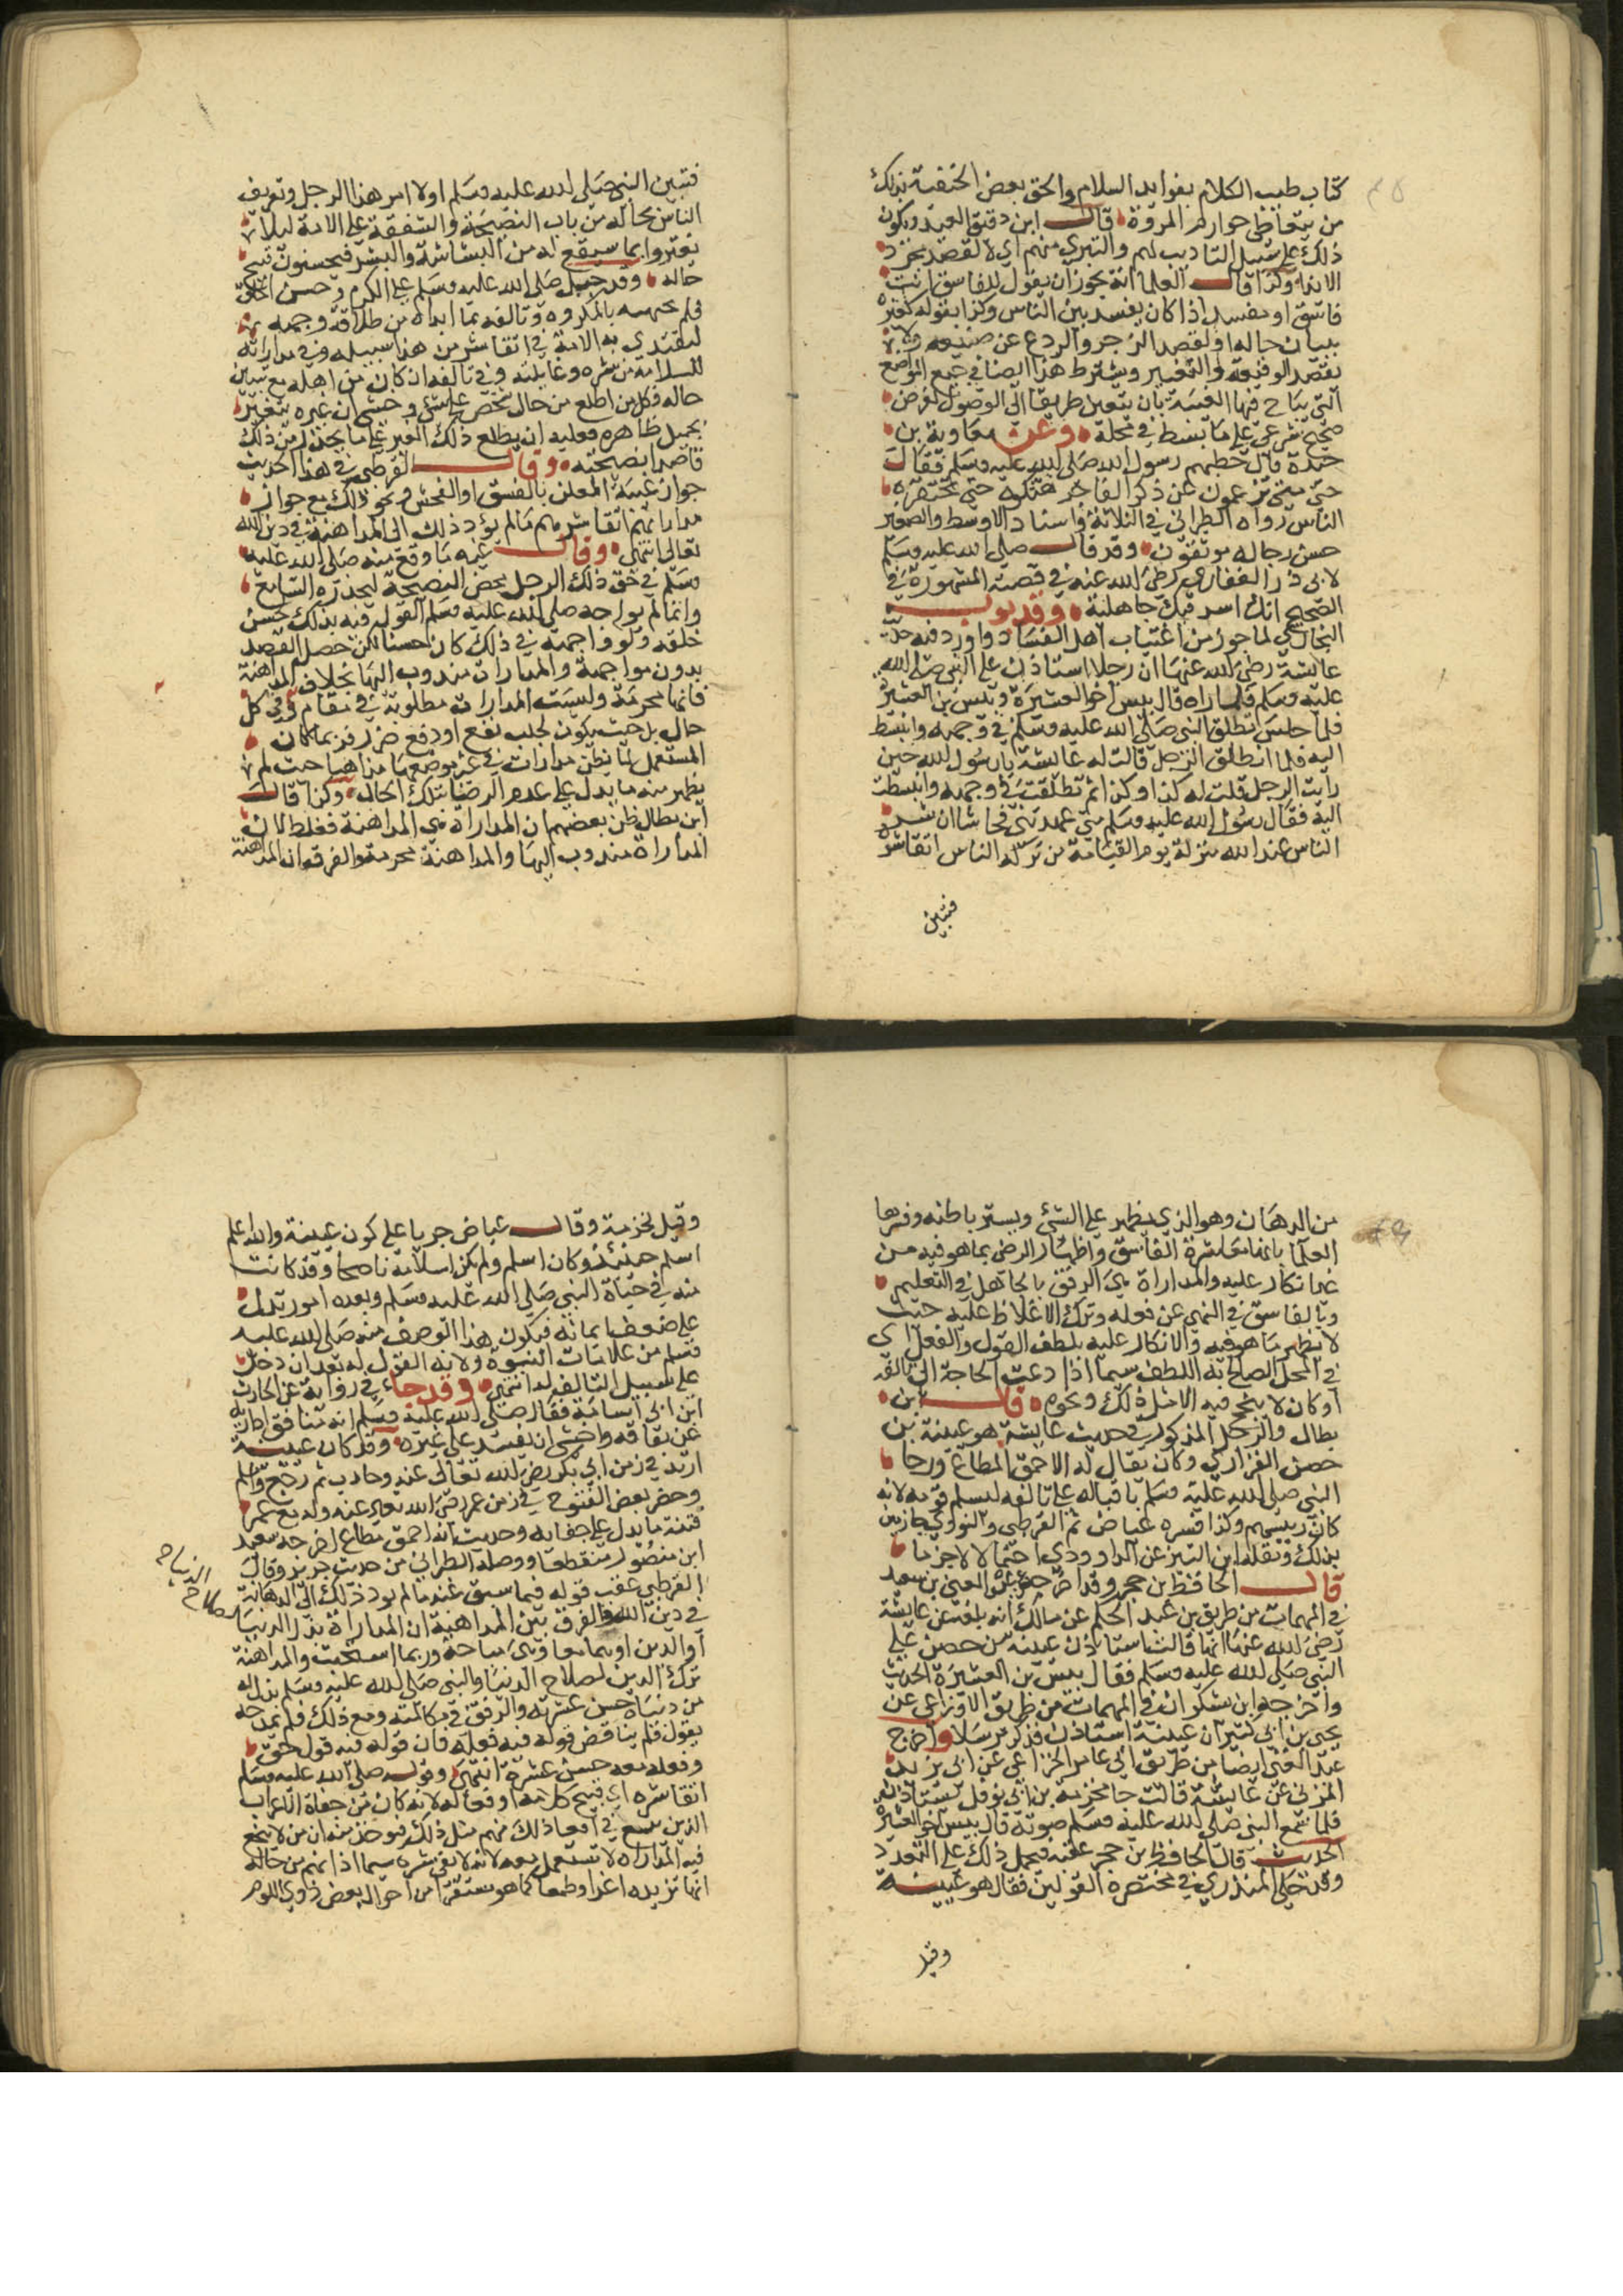 كتاب طيب الكلام بفوايد السلام والحق بعض الحنفية بذلك
من يتعاطى خوارم المروة قال ابن دقيق العيد ويكون
ذلك على سبيل التاديب لهم والتبري منهم اي لا لقصد مجرد
الايذاء وكذا قال العلما انه يجوز ان يقول للفاسق انت
فاسق او مفسد اذا كان يفسد بين الناس وكذا بقوله
بيان حاله او لقصد الزجر والردع عن صنيعه ولا
يقصد الوقيعة والتعيير ويشترط هذا ايضا في جميع المواضع
التي يباح فيها الغيبة بان يتعين طريقا الى الوصول لغرض
صحيح شرعي على ما بسط في محله وعن معاوية بن
حيدة قال خطبهم رسول الله صلى الله عليه وسلم فقال
حتى متى ترعون عن ذكر الفاجر هتكوه حتى يحذره
الناس رواه الطبراني في الثلاثة واسناد الاوسط والصغير
حسن رجاله موثقون وقد قال صلى الله عليه وسلم
لابي ذر الغفاري رضي الله عنه في قصته المشهورة في
الصحيح انك امرؤ فيك جاهلية وقد بوب
البخاري لما يجوز من اغتياب اهل الفساد واورد فيه حديث
عايشة رضي الله عنها ان رجلا استاذن على النبي صلى الله
عليه وسلم فلما راه قال بيس اخو العشيرة وبيس بن العشيرة
فلما جلس تطلق النبي صلى الله عليه وسلم في وجهه وانبسط
اليه فلما انطلق الرجل قالت له عايشة يا رسول الله حين
رايت الرجل قلت له كذا وكذا ثم تطلقت في وجهه وانبسطت
اليه فقال رسول الله عليه وسلم متى عهدتني فحاشا ان شر
الناس عند الله منزلة يوم القيامة من تركه الناس اتقا شره
فتبين
فتبين النبي صلى الله عليه وسلم اولا امر هذا الرجل وتعريف
الناس بحاله من باب النصيحة والشفقة على الامة ليلا
يغتروا بما سيقع له من البشاشة والبشر فيحسنون قبيح
حاله وقد جبل صلى الله عليه وسلم على الكرم وحسن الخلق
فلم يجبهه بالمكروه وتالفه بما ابداه من طلاقة وجهه
ليقتدي به الامة في اتقا شر من هذا سبيله وفي مداراته
للسلامة من شره وغايلته وفي تالفه ان كان من اهله مع تبيين
حاله فكل من اطلع من حال شخص على شي وخشي ان غيره يغتر
بجميل ظاهره فعليه ان يطلع ذلك الغير على ما يحذر من ذلك
قاصدا نصيحته وقال القرطبي في هذا الحديث
جواز غيبة المعلن بالفسق او الفحش ونحو ذلك مع جواز
مداراتهم اتقا شرهم ما لم يؤد ذلك الى المداهنة في دين الله
تعالى انتهى وقال غيره ما وقع منه صلى الله عليه
وسلم في حق ذلك الرجل محض النصيحة ليحذره السامع
وانما لم يواجه صلى الله عليه وسلم القول فيه بذلك لحسن
خلقه ولو واجهه في ذلك كان حسنا لكن حصل القصد
بدون مواجهة والمدارات مندوب اليها بخلاف المداهنة
فانها محرمة وليست المدارات مطلوبة في مقام وفي كل
حال بل حيث يكون لجلب نفع او دفع ضرر فربما كان
المستعمل لما يظن مدارات في غير موضعها مداهنا حيث لم
يظهر منه ما يدل على عدم الرضا بتلك الحال وكذا قال
ابن بطال ظن بعضهم ان المداراة هي المداهنة فغلط لان
المداراة مندوب اليها والمداهنة محرمة والفرق ان المداهنة
من الدهان وهو الذي يظهر على الشي ويستر باطنه وفسرها
العلما بانها معاشرة الفاسق واظهار الرضى بما هو فيه من
غير انكار عليه والمداراة هي الرفق بالجاهل في التعليم
وبالفاسق في النهي عن فعله وترك الاغلاظ عليه حيث
لا يظهر ما هو فيه والانكار عليه بلطف القول والفعل اي
في المحل الصالح به اللطف سيما اذا دعت الحاجة الى تالفه
او كان لا ينجح فيه الا ذلك ونحوه قال ابن
بطال والرجل المذكور في حديث عايشة هو عيينة بن
حصن الفزاري وكان يقال له الاحمق المطاع ورجا
النبي صلى الله عليه وسلم باقباله على تالفه ليسلم قومه لانه
كان رييسهم وكذا فسره عياض ثم القرطبي والنووي جازمين
بذلك ونقله ابن التين عن الداوودي احتمالا لا جزما
قال الحافظ بن حجر وقد اخرجه عبد الغني بن سعيد
في المبهمات من طريق بن عبد الحكم عن مالك انه بلغه عن عايشة
رضي الله عنها انها قالت استاذن عيينة بن حصن على
النبي صلى الله عليه وسلم فقال بيس بن العشيرة الحديث
واخرجه ابن بشكوال في المبهمات من طريق الاوزاعي عن
يحيى بن ابي كثير ان عيينة استاذن فذكره مرسلا واخرج
عبد الغني ايضا من طريق ابي عامر الخزاعي عن ابي يزيد
المزني عن عايشة قالت جا مخرمة بن نوفل يستاذن
فلما سمع النبي صلى الله عليه وسلم صوته قال بيس اخو العشيرة
الحديث قال الحافظ بن حجر عقبه فيحمل ذلك على التعدد
وقد حكى المنذري في مختصره القولين فقال هو عيينة
وقيل
وقيل مخرمة وقال عياض جريا على كون عيينة والله اعلم
اسلم حينئذ وكان اسلم ولم يكن اسلامه ناصحا وقد كانت
منه في حياة النبي صلى الله عليه وسلم وبعده امور تدل
على ضعف ايمانه فيكون هذا الوصف منه صلى الله عليه
وسلم من علامات النبوة ولانه القول له بعد ان دخل
على سبيل التالف له انتهى وقد جاء في رواية عن الحارث
ابن ابي اسامة فقال صلى الله عليه وسلم انه منافق اداريه
عن نفاقه واخشى ان يفسد على غيره وقد كان عيينة
ارتد في زمن ابي بكر رضي الله تعالى عنه وحارب ثم رجع واسلم
وحضر بعض الفتوح في زمن عمر رضي الله تعالى عنه وله مع عمر
قصة ما يدل على جفايه وحديث انه احمق مطاع اخرجه سعيد
ابن منصور منقطعا ووصله الطبراني من حديث جرير وقال
القرطبي عقب قوله فيما سبق عنه ما لم يود ذلك الى المداهنة
في دين الله والفرق بين المداهنة ان المداراة بذل الدنيا لصلاح الدنيا
او الدين او هما معا وهي مباحة وربما استحبت والمداهنة
ترك الدين لصلاح الدنيا والنبي صلى الله عليه وسلم بذل له
من دنياه حسن عشرته والرفق في مكالمته ومع ذلك فلم يمدحه
بقول فلم يناقض قوله فيه فعله فان قوله فيه قول حق
وفعله معه حسن عشرة انتهى وقوله صلى الله عليه وسلم
اتقا شره اي قبيح كلامه او فعاله لانه كان من جفاة الاعراب
الذين سمع في ذلك منهم مثل ذلك فيوخذ منه ان من لا ينجع
فيه المداراة لا تستعمل معه لانه لا يقي شره سيما اذا فهم من حاله
انها تزيده اغرا وطمعا كما هو مستقرا من احوال بعض ذوي اللوم